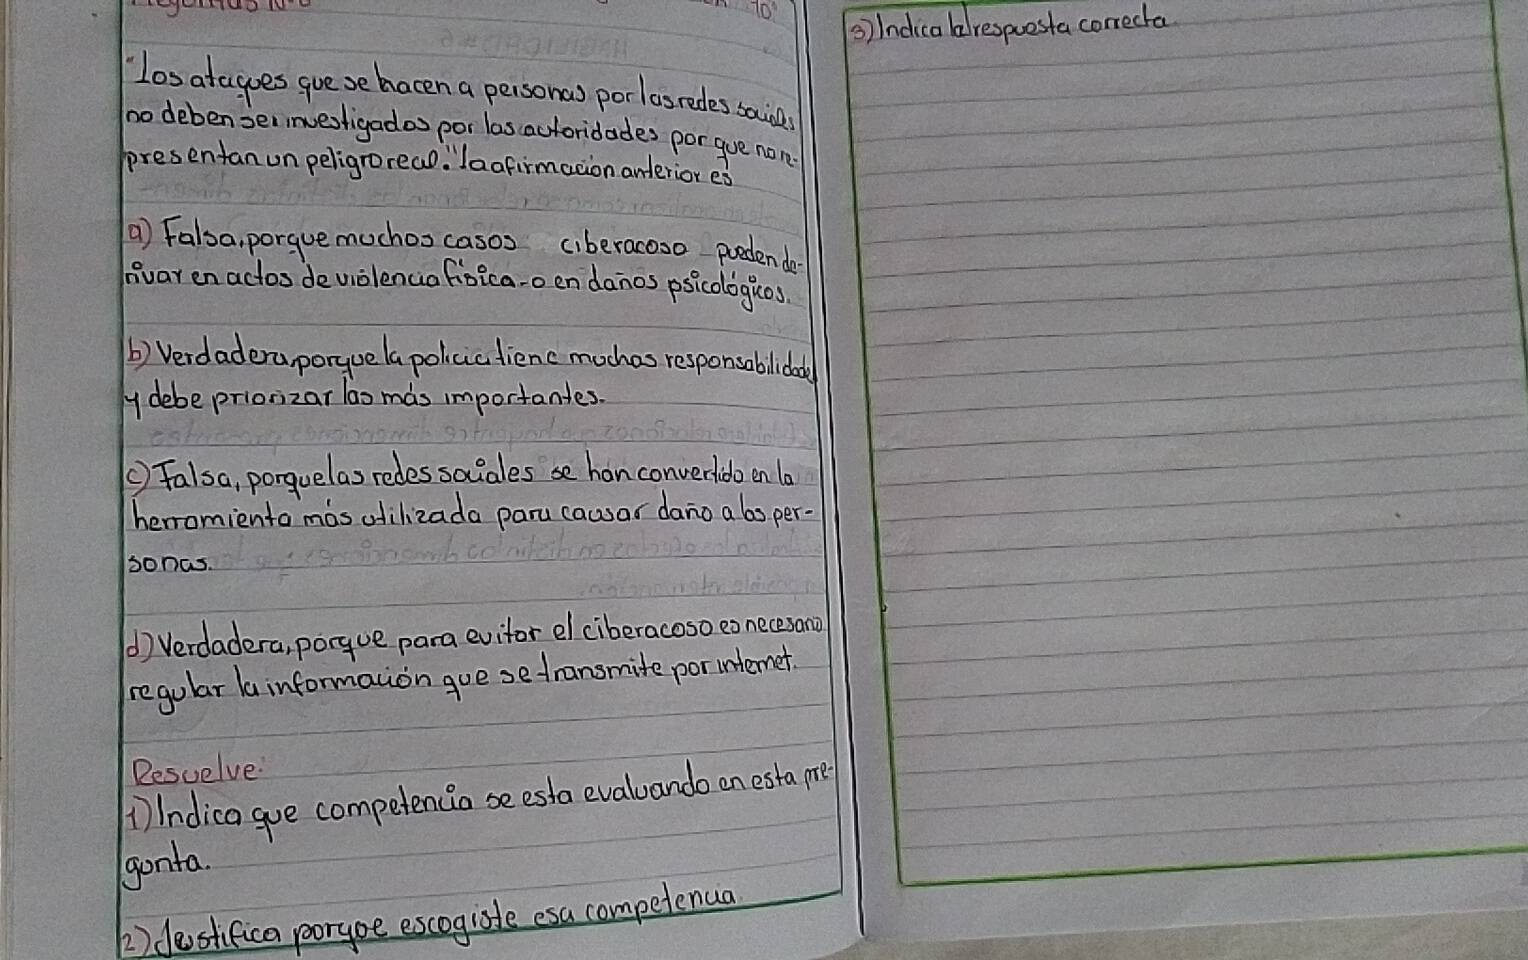 "Los ataques que se hacen a personas por las redes sociales
no deben ser investigados por las autoridades por que no re-
presentan un peligro real." la afirmación anterior es
a) Falsa, porque muchos casos ciberacoso pueden de-
rivar en actos de violencia física o en daños psicológicos.
b) Verdadera, porque la policia tiene muchas responsabilidades
y debe priorizar las más importantes.
c) Falsa, porque las redes sociales se han convertido en la
herramienta más utilizada para causar daño a las per-
sonas.
d) Verdadera, porque para evitar el ciberacoso es necesario
regular la información que se transmite por internet.
Resuelve:
1) Indica que competencia se esta evaluando en esta pre-
gunta.
2) Justifica porque escogiste esa competencia
3) Indica la respuesta correcta